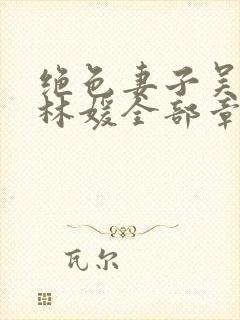 绝色妻子吴
林媛全部章
瓦尔